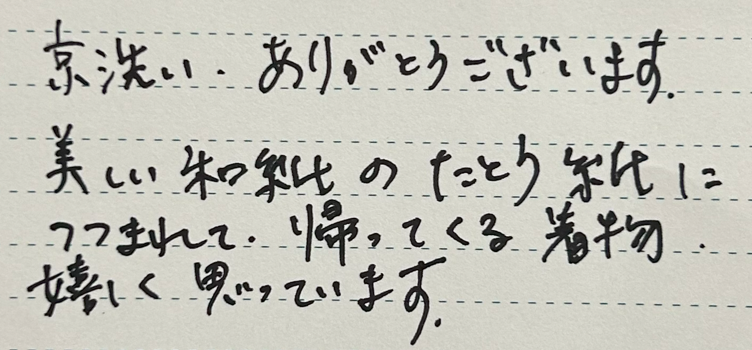 京洗い. ありがとうございます.
美しい和紙のたとう紙に
つつまれて. 帰ってくる着物.
嬉しく思っています.